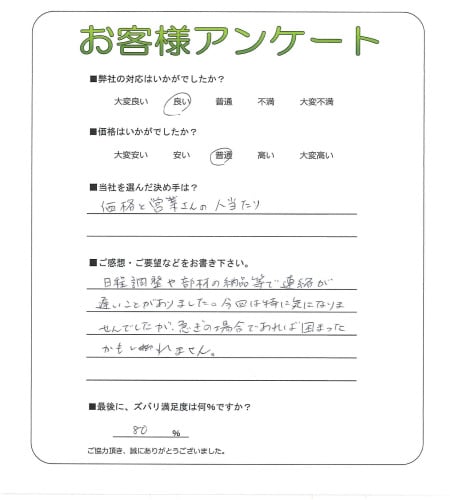 お客様アンケート
■弊社の対応はいかがでしたか？
大変良い 良い 普通 不満 大変不満
■価格はいかがでしたか？
大変安い 安い 普通 高い 大変高い
■当社を選んだ決め手は？
価格と営業さんの人当たり
■ご感想・ご要望などをお書き下さい。
日程調整や部材の納品等で連絡が
遅いことがありました。今回は特に気になりま
せんでしたが、急ぎの場合であれば困まった
かもしれません。
■最後に、ズバリ満足度は何％ですか？
80 ％
ご協力頂き、誠にありがとうございました。